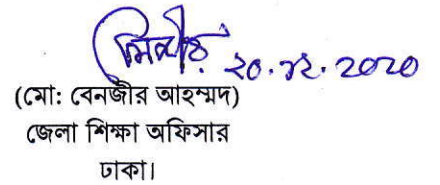 ২০.১২.2020
(মো: বেনজীর আহম্মদ)
জেলা শিক্ষা অফিসার
ঢাকা।